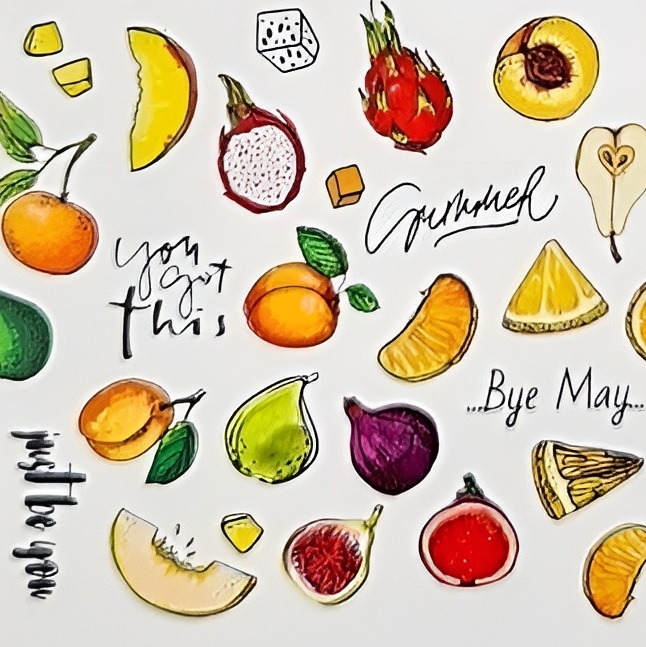 you
got
this
Summer
...Bye May...
just be you